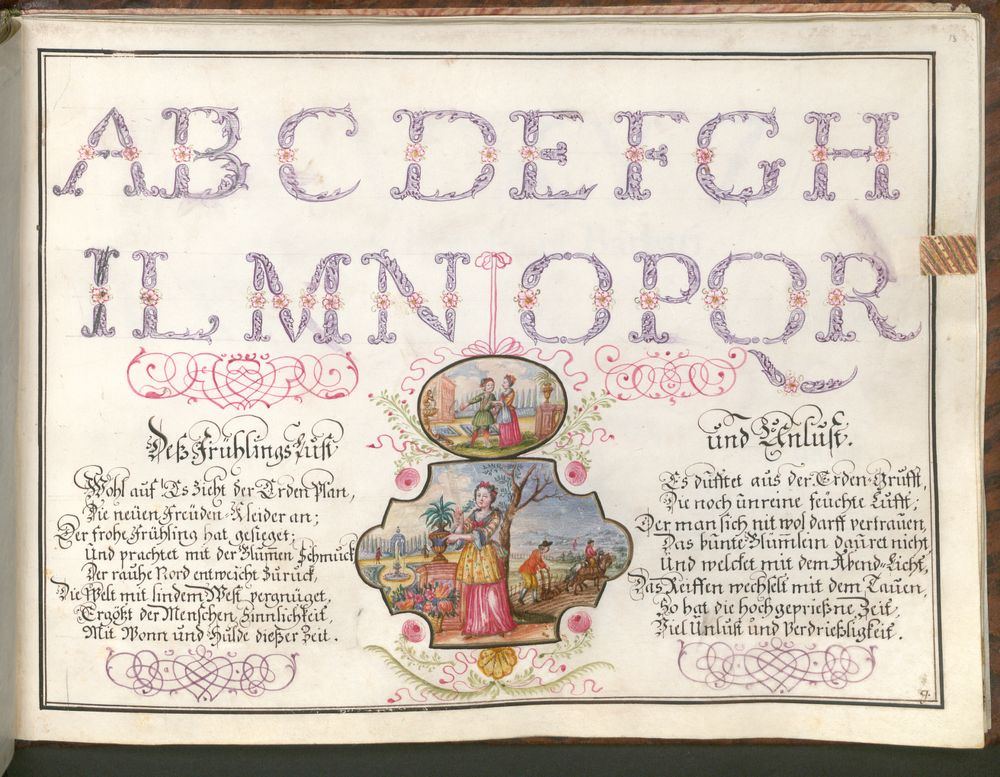 A B C D E F G H
I L M N O P Q R
Deß Frühlings Lust
Wohl auf! Es zicht der Erden Plan,
Die neüen Freüden-Kleider an;
Der frohe Frühling hat gesieget;
Und prachtet mit der Blumen Schmuck
Der rauhe Nord entweicht zurück,
Die Welt mit lindem West vergnüget,
Ergözt der Menschen Sinnlichkeit,
Mit Wonn und Hülde dießer Zeit.
und Unlust.
Es düfftet aus der Erden-Grufft,
Die noch ünreine feüchte Lufft;
Der man sich nit wol darff vertrauen,
Das bunte Blümlein dauret nicht,
Und welcket mit dem Abend-Licht,
Das Reiffen wechselt mit dem Tauen,
So hat die hochgepriesne Zeit,
Viel Unlust und Verdrießligkeit.
9.
13